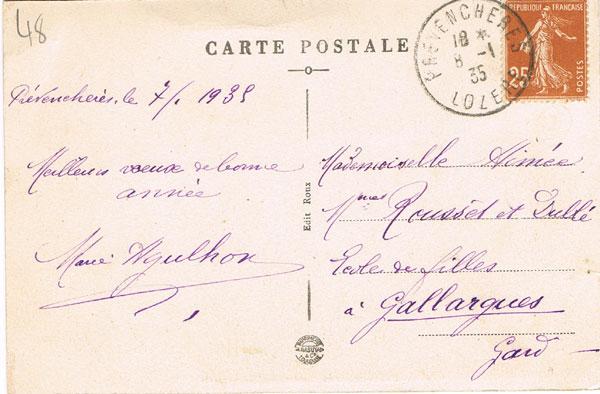 48
CARTE POSTALE
PRÉVENCHÈRES
18 *
8 -1
35
LOZÈRE
RÉPUBLIQUE FRANÇAISE
25
POSTES
Prévenchères, le 7/1 1935
Meilleurs vœux de bonne
année
Marie Agulhon
Edit Roux
Mademoiselle Aimée
Mmes Rousset et
Ecole de filles
à Gallargues
Gard